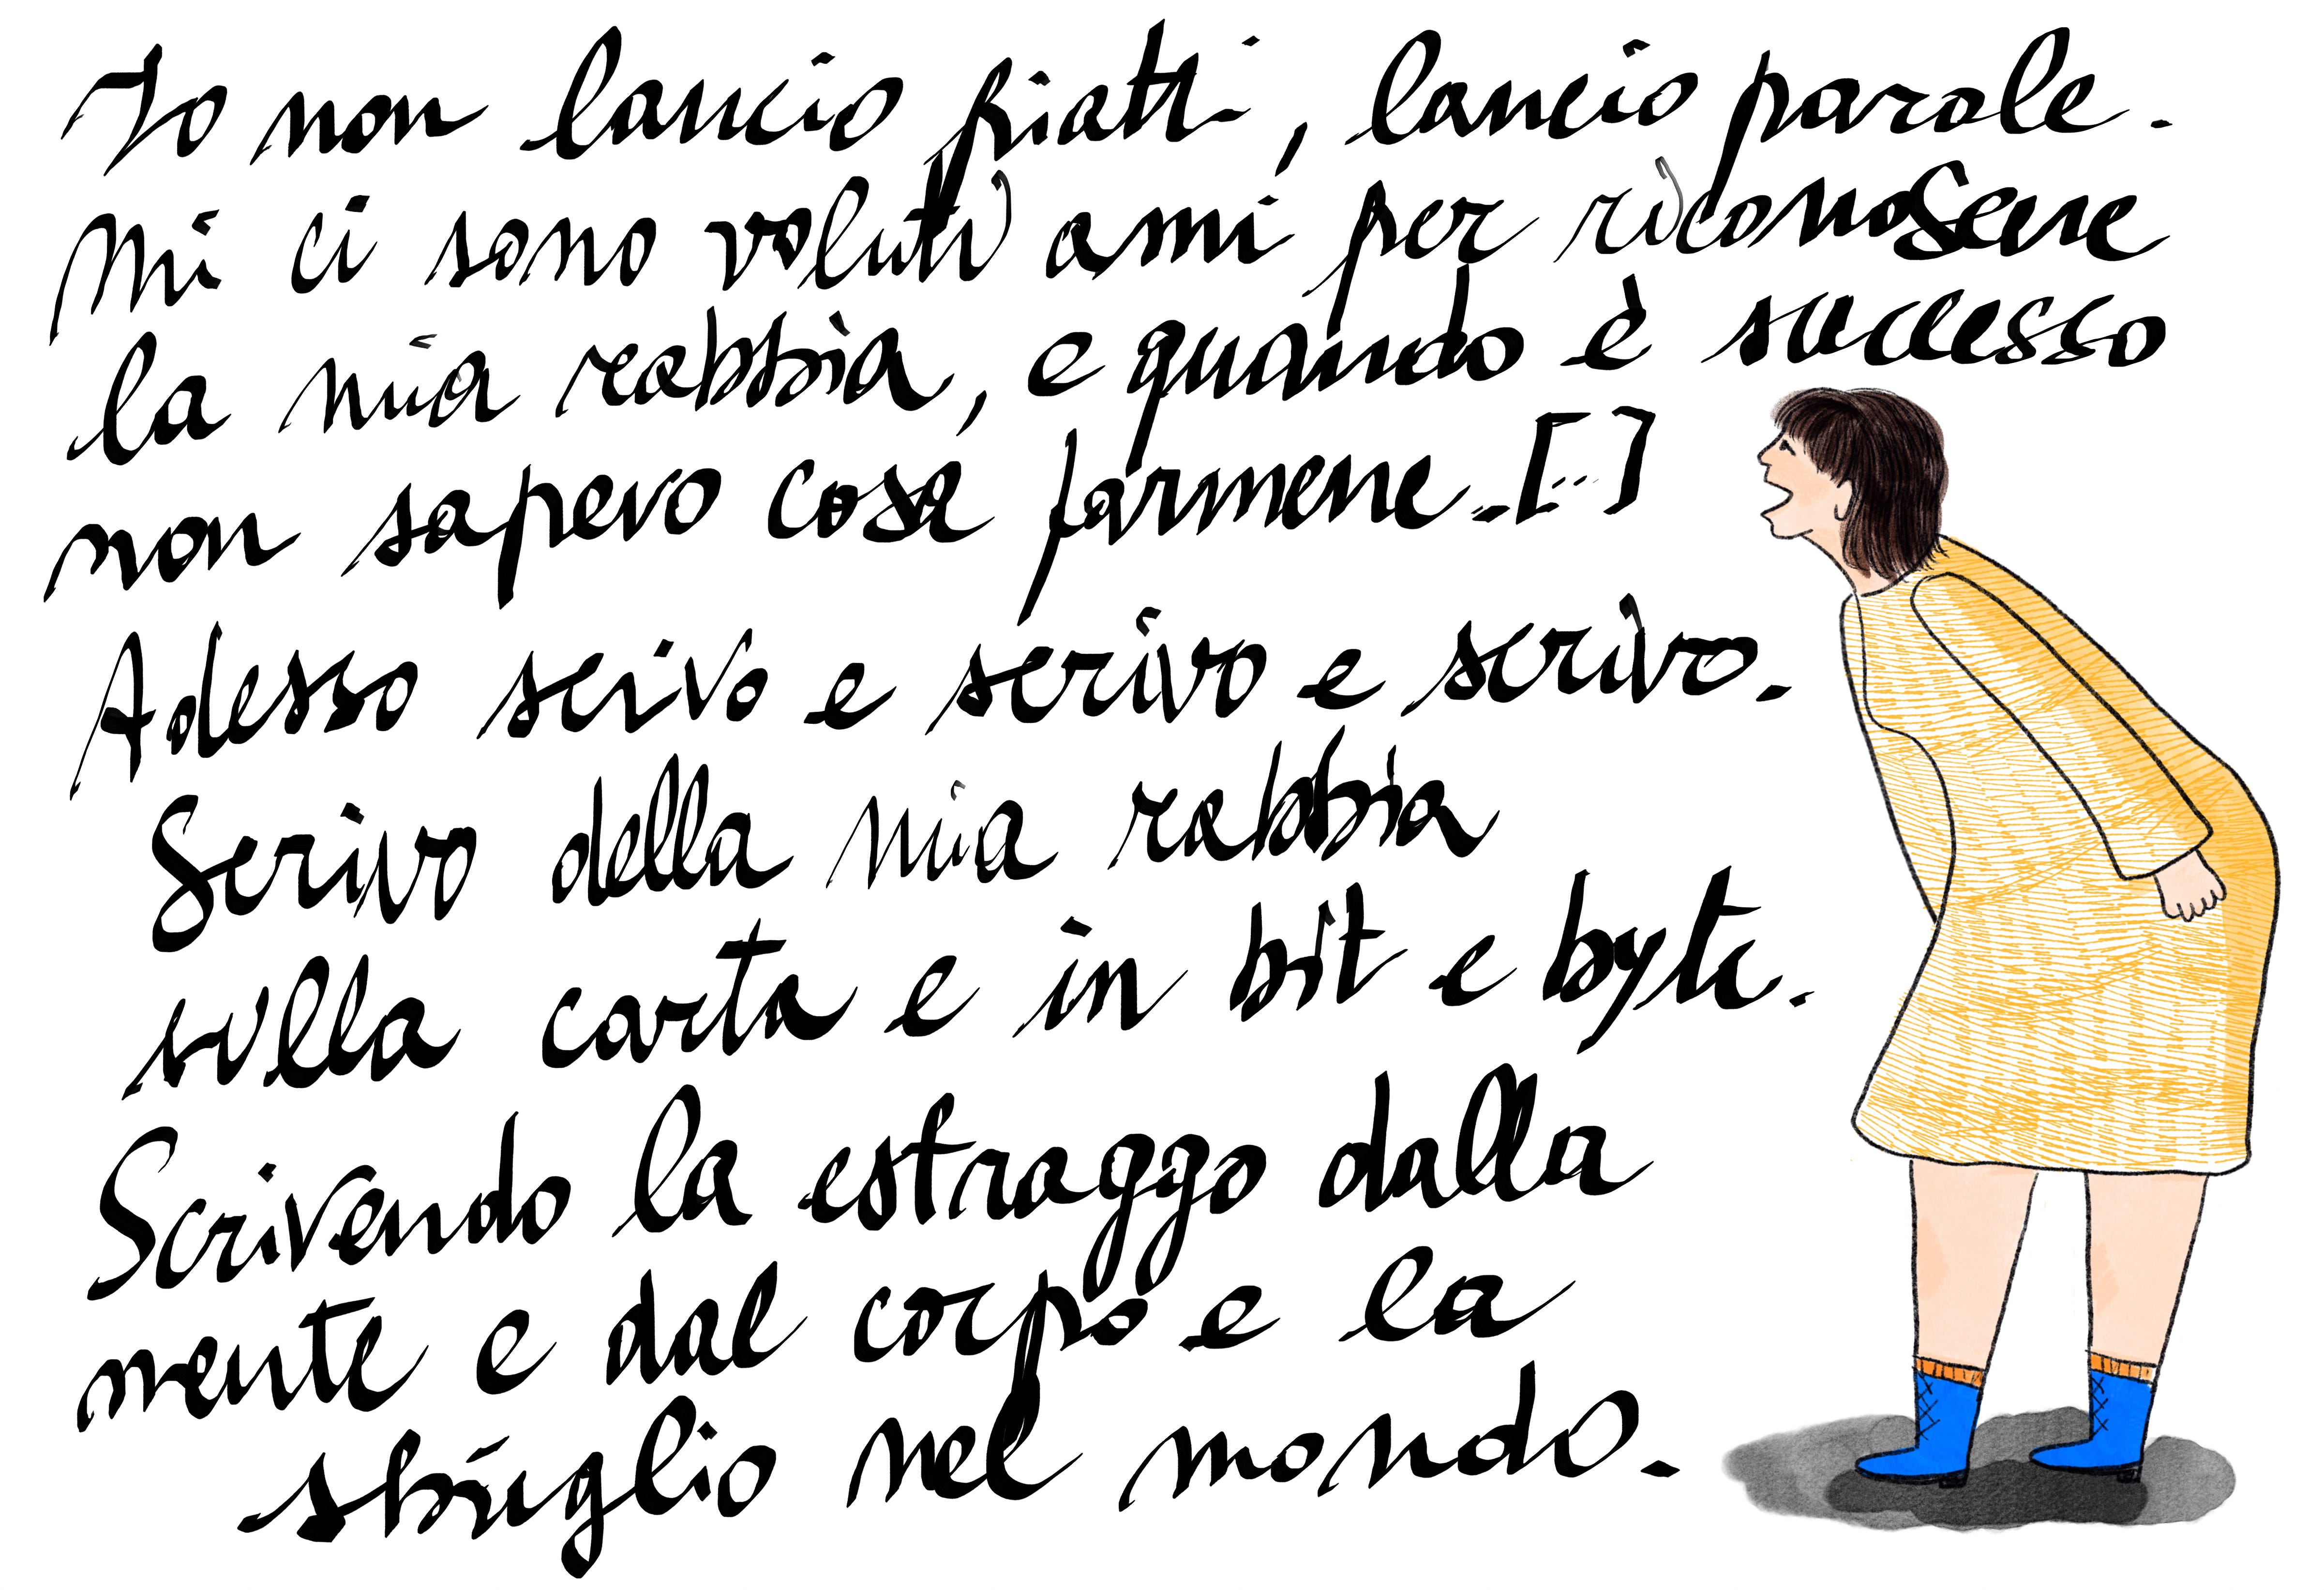 Io non lancio piatti, lancio parole.
Mi ci sono voluti anni per riconoscere
la mia rabbia, e quando è successo
non sapevo cosa farmene. [..]
Adesso scrivo e scrivo e scrivo.
Scrivo della mia rabbia
sulla carta e in bit e byte.
Scrivendo la estraggo dalla
mente e dal corpo e la
sbriglio nel mondo.